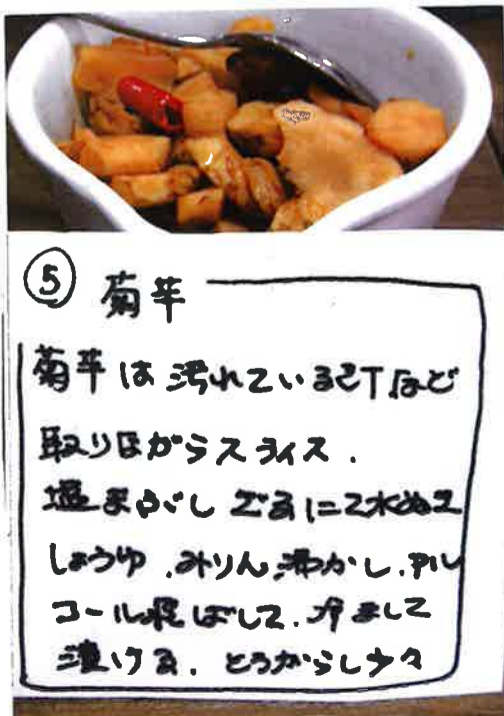 ⑤ 菊芋
菊芋は汚れている所など
取りながらスライス.
塩まぶし ざるにて水ぬき
しょうゆ.みりん,沸かし.アル
コール飛ばして.冷まして
漬ける. とうがらし少々